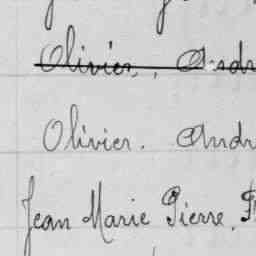 Olivier, Andr
Olivier. Andr
Jean Marie Pierre, F